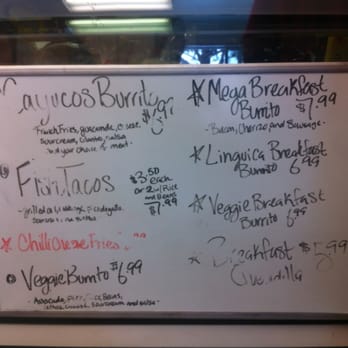 Cayucos Burrito
$7.99
French Fries, guacamole, cheese,
Sourcream, Cilantro, salsa
and your choice of meat.
Fish Tacos
$3.50
each
or 2 w/ Rice
and Beans
$7.99
Chili Cheese Fries
Veggie Burrito $6.99
Avocado, Rice, Beans,
Sourcream and salsa
Mega Breakfast
Burrito $7.99
-Bacon, Chorizo, and Sausage-
Linguica Breakfast
Burrito 6.99
Veggie Breakfast
Burrito 6.99
Breakfast $5.99